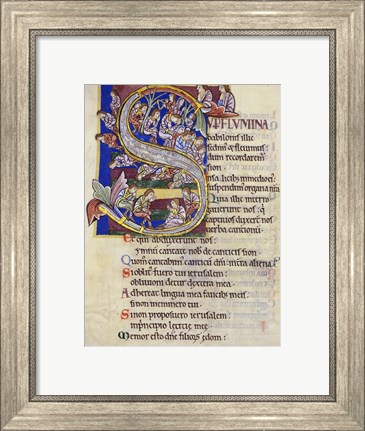 SVP FLVMINA
babilonis illic
sedim' & fleuimus:
dum recordarem'
sion
Insalicib; inmedio ei':
suspendim' organa nra
Quia illic interro
gauerunt nos: q
captiuos duxer' nos
uerba cantionu
Et qui abduxerunt nos:
ymnu cantate nob de canticis sion
Quom cantabim' canticu dni: intra aliena
Si oblit' fuero tui ierusalem:
obliuioni detur dextera mea
Adhereat lingua mea faucib; meis:
si non meminero tui
Si non proposuero ierusalem:
inprincipio leticie mee
Memor esto dne filioru edom: